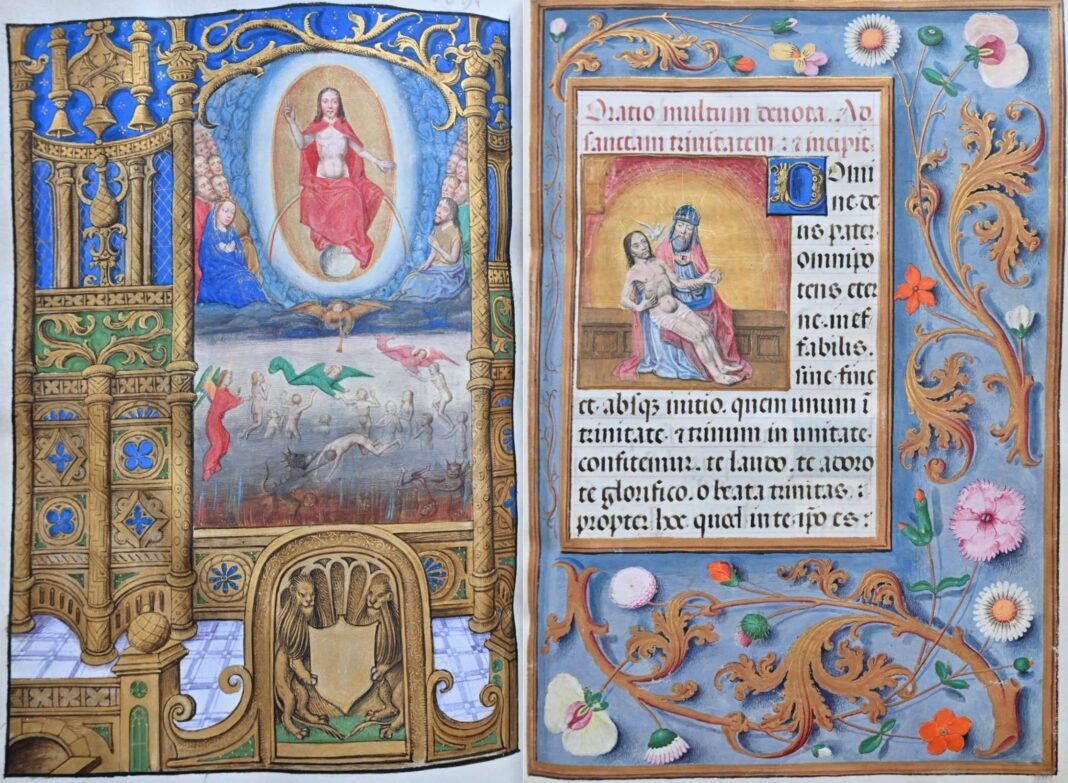 Oratio multum devota. Ad
sanctam trinitatem : ⁊ incipit.
DOmi
ne. de
us pater.
omnipo
tens eter
ne. inef
fabilis.
sine fine
et absqꝫ initio. quem unum ī
trinitate. ⁊ trinum in unitate.
confitemur. te laudo. te adoro
te glorifico. o beata trinitas :
propter hoc quod in te ip̄o es :